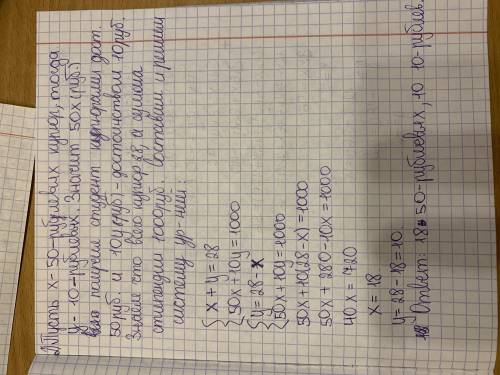 2. Пусть x - 50-рублевых купюр, тогда
y - 10-рублевых. Значит 50x (руб.)
всего получил студент купюрами дост.
50 руб и 10y (руб) - достоинством 10 руб.
Знаем что всего купюр 28, а сумма
стипендии 1000 руб. Составим и решим
систему ур-ний:
{ x + y = 28
{ 50x + 10y = 1000
{ y = 28 - x
{ 50x + 10y = 1000
50x + 10(28 - x) = 1000
50x + 280 - 10x = 1000
40x = 720
x = 18
y = 28 - 18 = 10
Ответ: 18 50-рублевых, 10 10-рублев.